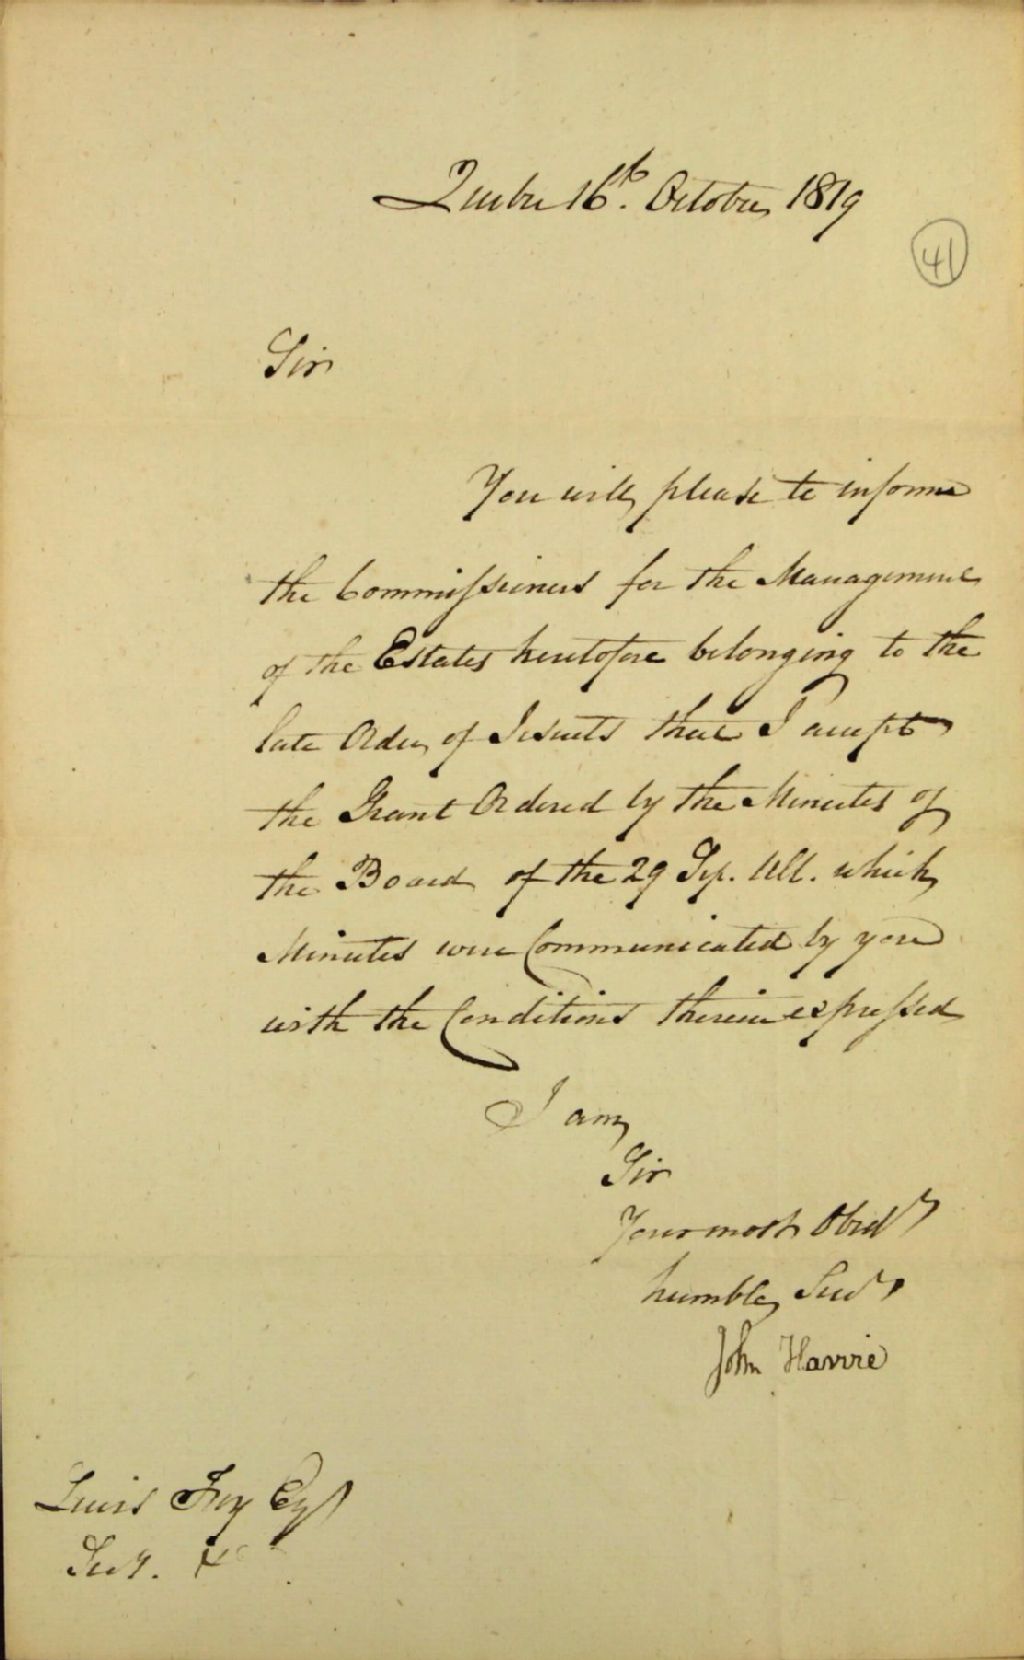 Quebec 16th. October 1819
41
Sir
You will please to inform
the Commissioners for the Management
of the Estates heretofore belonging to the
late Order of Jesuits that I accept
the Grant Ordered by the Minutes of
the Board of the 29 Sep. Ult. which
Minutes were Communicated by you
with the Conditions therein expressed
I am
Sir
Your most Obedt
humble Servt
John Harvie
Lewis Foy Esqr
Secy. &c